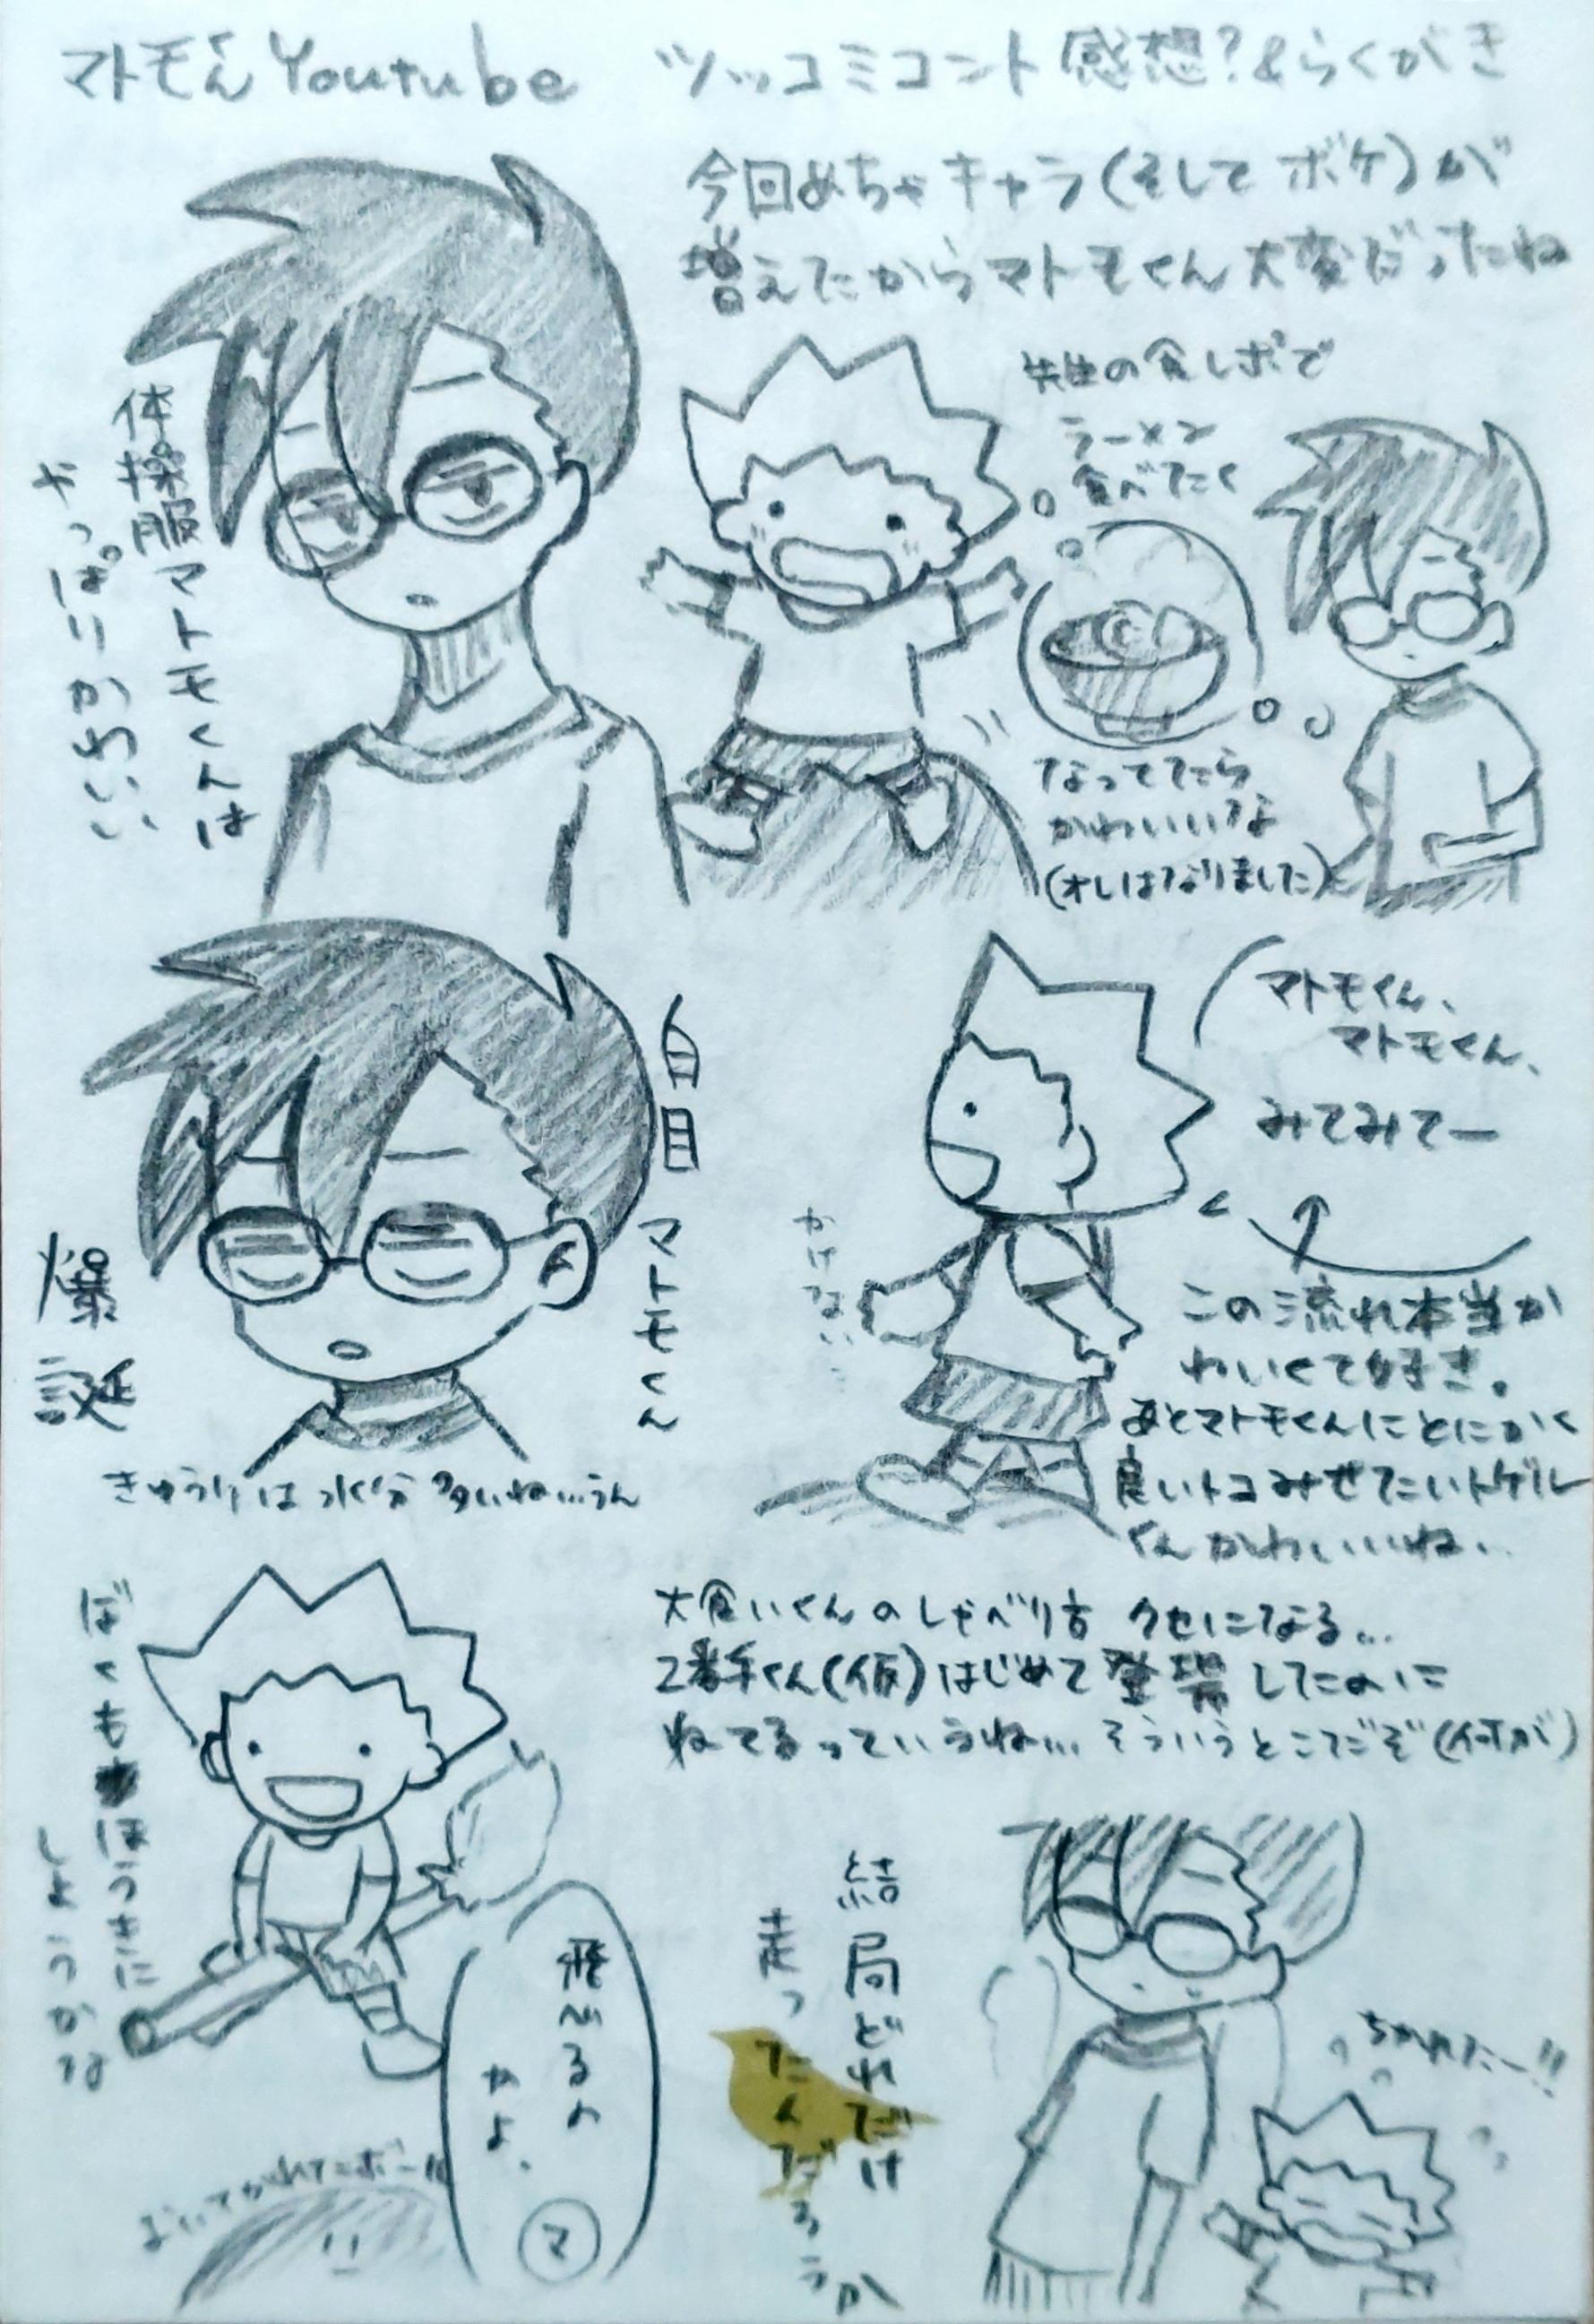 マトモくんYoutube ツッコミコント感想?&らくがき
今回めちゃキャラ(そしてボケ)が
増えたからマトモくん大変だったね
体操服マトモくんは
やっぱりかわいい
先生の食レポで
ラーメン
食べたく
なってたら
かわいいな
(オレはなりました)
白目
マトモくん
爆誕
きゅうりは水分多いね…うん
マトモくん、
マトモくん、
みてみてー
かけない…
この流れ本当か
わいくて好き。
あとマトモくんにとにかく
良いトコみせたいトゲル
くんかわいいね…
大食いくんのしゃべり方 クセになる…
2番手くん(仮)はじめて登場したのに
ねてるっていうね… そういうとこだぞ(何が)
ぼくもほうきに
しようかな
飛ぶな
よ。
マ
おいてかれたボール
結局どれだけ
走ったんだろうか
ちかれたー!!